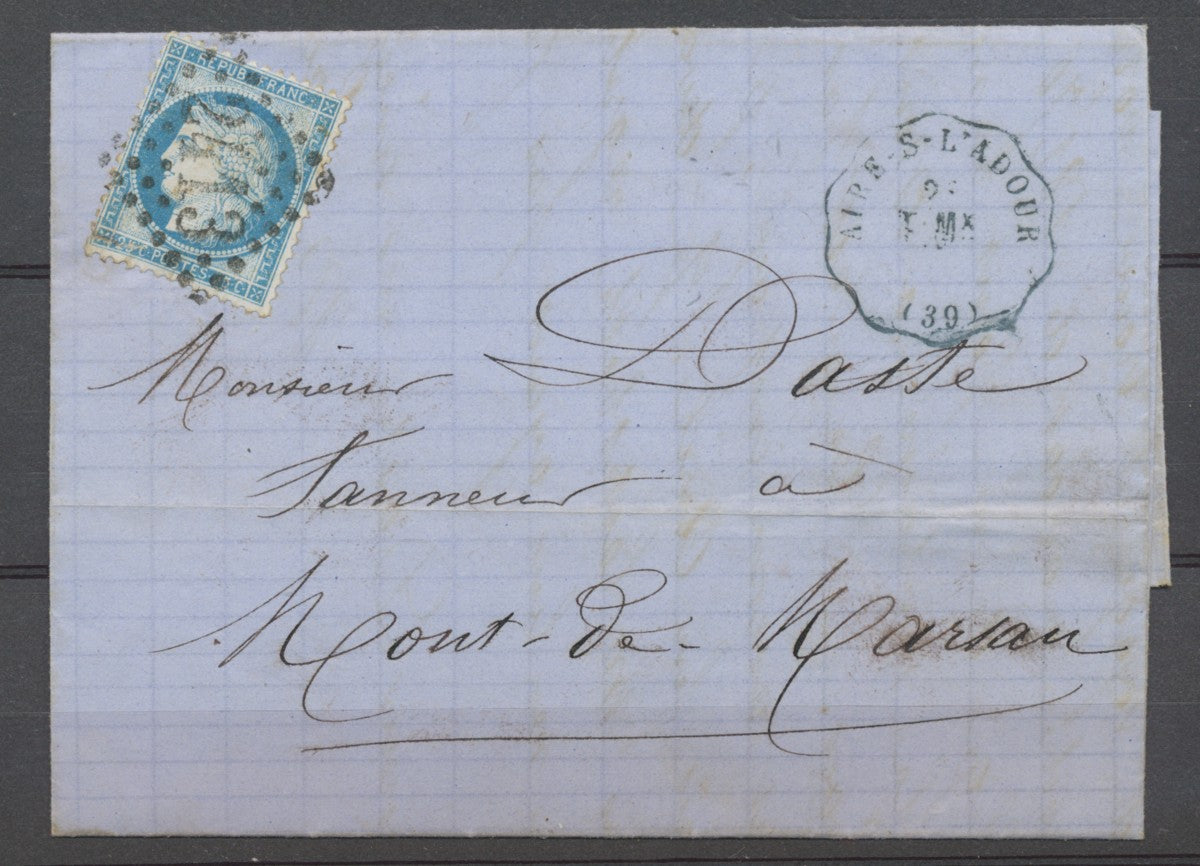 REPUB. FRANC.
25 C. POSTES 25 C.
AIRE-S-L'ADOUR
T. Mx
(39)
Monsieur Daste
Tanneur à
Mont-de-Marsan